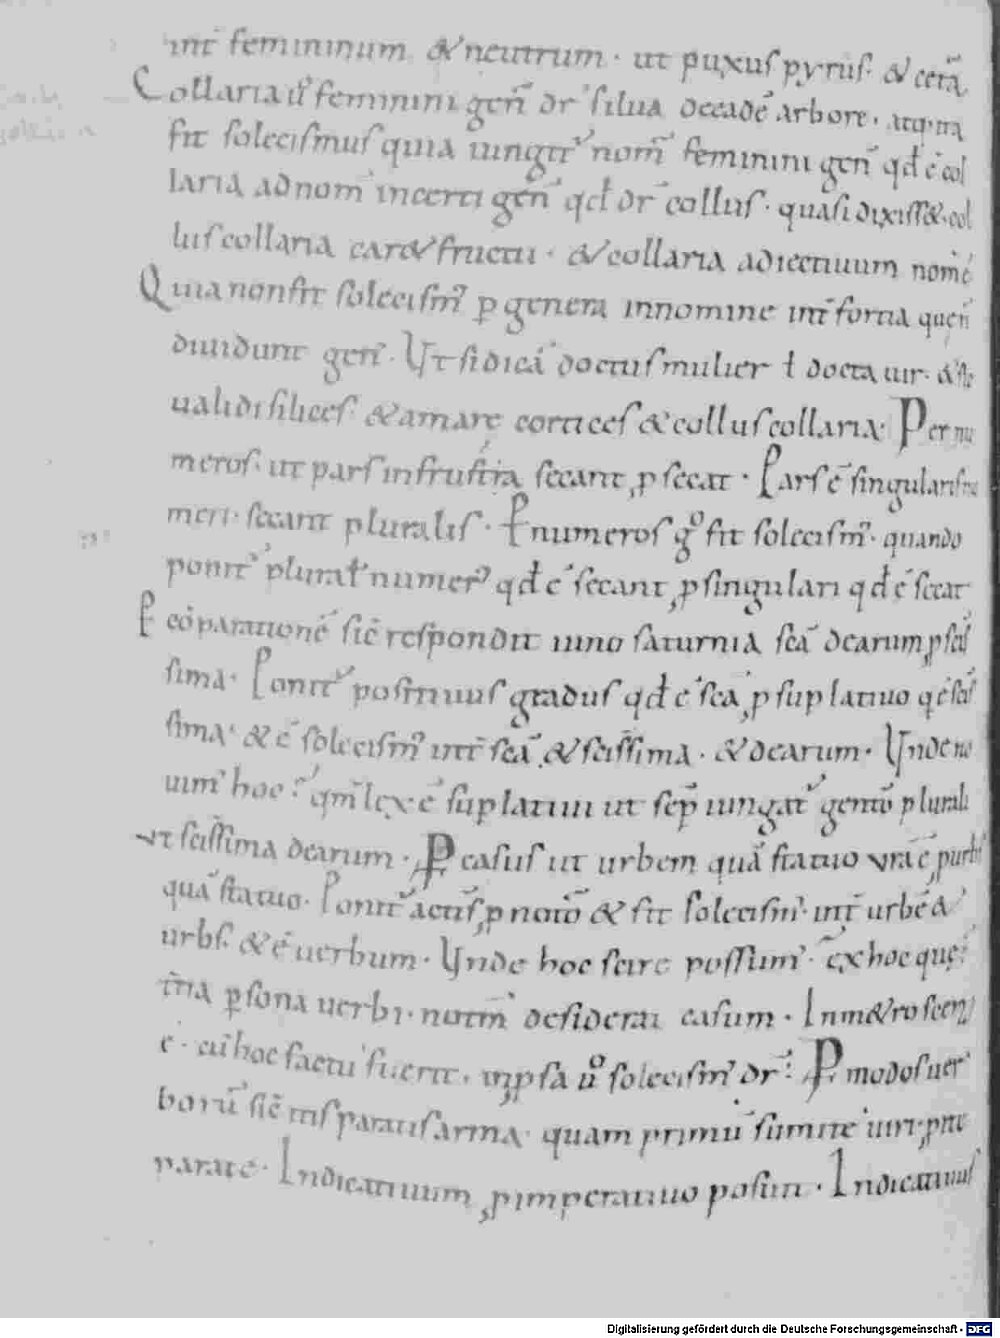 int̄ femininum & neutrum · ut puxus pyrus · & cetā
Collaria ū feminini geñ dr̄ silua decadē arbore · atq; ita
fit solecismus quia iungit᷑ nom̄ feminini geñ qđ ē col
laria ad nom̄ incerti geñ qđ dr̄ collus · quasi dixiss& · col
lus collaria car& fructu · & collaria adiectiuum nom̄ ē
Quia non fit solecism̓ ꝑ genera in nomine int̄ fortia quę ñ
diuidunt geñ · Ut si dicā doctus mulier ł docta uir · &
ualidi silices · & amare cortices & collus collaria · Per nu
meros · ut pars in frustra secant, ꝑ secat · Pars ē singularis
meri · secant pluralis · P numeros gͦ fit solecism̓ · quando
ponit᷑ plurał numer̓ qđ ē secant, ꝑ singulari qđ ē secat
P cōparationē sic̄ respondit iuno saturnia scā dearum, ꝑ scis
sima · Ponit᷑ positiuus gradus qđ ē scā, ꝑ suplatiuo q̄ ē scis
sima · & ē solecism̓ int̄ scā & scissima · & dearum · Unde no
uim̓ hoc · qm̄ lex ē suplatiui ut sep̄ iungat᷑ gentō plurali
Ut scissima dearum · P casus ut urbem quā statuo ur̄a ē, ꝑ urbs
quā statuo · Ponit᷑ actis̄, ꝑ notō & fit solecism̓ · int̄ urbē &
urbs · & ē uerbum · Unde hoc scire possum̓ · Ex hoc quę
t̄tia ꝑsona uerbi · notm̄ desiderat casum · In m&ro
ē · cū hoc factū fuerit · in, ꝑsa ūͦ solecism̓ dr̄ · P modos uer
borū sic̄ itis paratis arma · quam primū sumite uiri · ꝑ ite
parate · Indicatiuum, ꝑ imperatiuo posuit · Indicatiuus
Digitalisierung gefördert durch die Deutsche Forschungsgemeinschaft - DFG